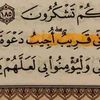 كُمْ تَشْكُرُونَ ١٨٥
قَرِيبٌ أُجِيبُ دَعْوَةَ
وَلْيُؤْمِنُوا۟ بِى لَعَلَّهُمْ